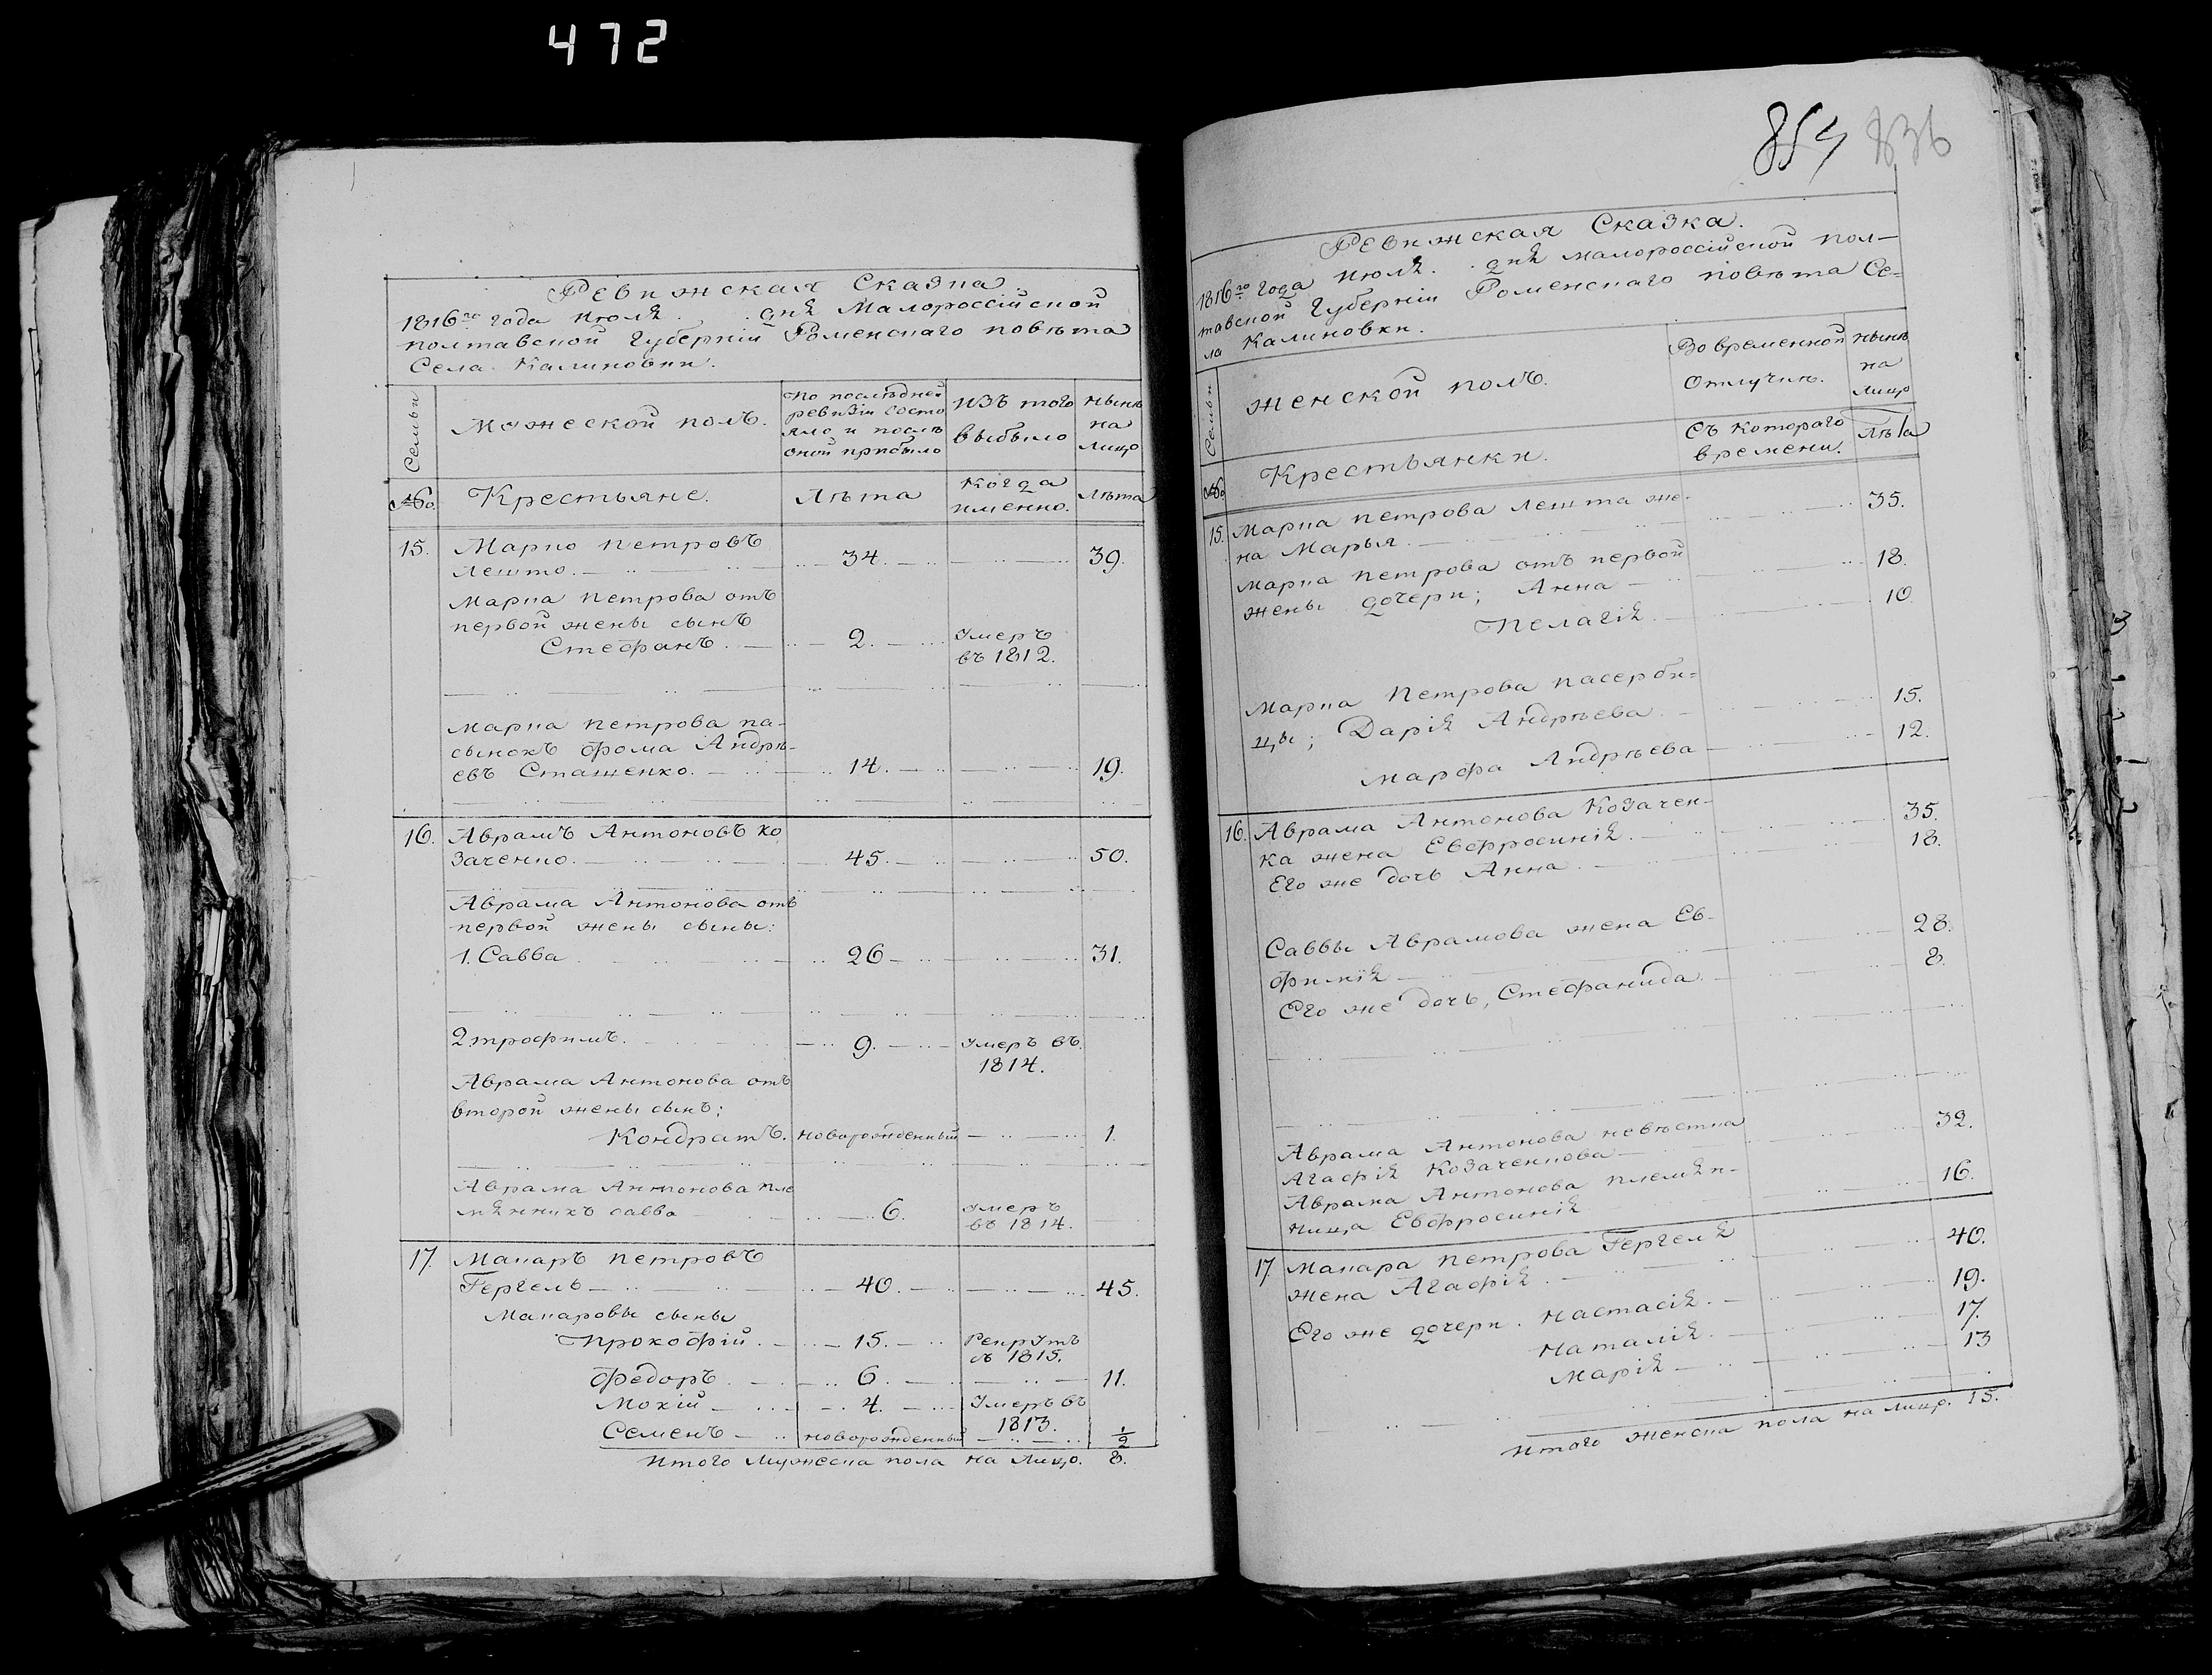 472
Ревижская Сказка.
1816го года Июля . . дня Малороссійской
полтавской Губерніи Роменскаго повѣта
Села Калиновки.
Семьи
Мужеской полъ.
По послѣдней
ревизіи состо
яло и послѣ
оной прибыло
Изъ того
выбыло
Нынѣ
на
лицо
№
Крестьяне.
Лѣта
Когда
именно.
Лѣта
15. Марко Петровъ
Лешто. 34. 39.
Марка Петрова отъ
первой жены сынъ
Стефанъ. 2. Умеръ
въ 1812.
Марка Петрова па-
сынокъ Фома Андрѣ-
евъ Сташенко. 14. 19.
16. Аврамъ Антоновъ Ко
заченко. 45. 50.
Аврама Антонова отъ
первой жены сыны:
1. Савва 26 31.
2 трофимъ. 9. Умеръ въ
1814.
Аврама Антонова отъ
второй жены сынъ;
Кондратъ. новорожденный 1.
Аврама Антонова пле
мянникъ савва 6. Умеръ
въ 1814.
17. Макаръ Петровъ
Гергель 40. 45.
Макаровы сыны
Прокофій. 15. Рекрутъ
въ 1815.
Федоръ 6. 11.
Мокій 4. Умеръ въ
1813.
Семенъ новорожденный ½
Итого Мужеска пола на лицо. 8.
854 836
Ревижская Сказка.
1816го года Июля . . дня Малороссійской пол-
тавской Губерніи Роменскаго повѣта Се=
ла Калиновки.
Семьи
Женской полъ.
Во временной
отлучкѣ.
Нынѣ
на
лицо
№
Крестьянки.
Съ котораго
времени.
Лѣта
15. Марка Петрова Лешта же-
на Марья. 35.
Марка Петрова отъ первой
жены дочери; Анна 18.
Пелагія 10.
Марка Петрова пасерби=
цы; Дарія Андрѣева. 15.
Марфа Андрѣева 12.
16. Аврама Антонова Козачен-
ка жена Евфросинія. 35.
Его же дочь Анна 18.
Саввы Аврамова жена Ев-
фимія 28.
Его же дочь, Стефанида. 8.
Аврама Антонова невѣстка
Агафія Козаченкова 32.
Аврама Антонова племян-
ница Евфросинія 16.
17. Макара Петрова Гергеля
жена Агафія. 40.
Его же дочери. Настасія. 19.
Наталія. 17.
Марія 13
Итого Женска пола на лицо. 15.